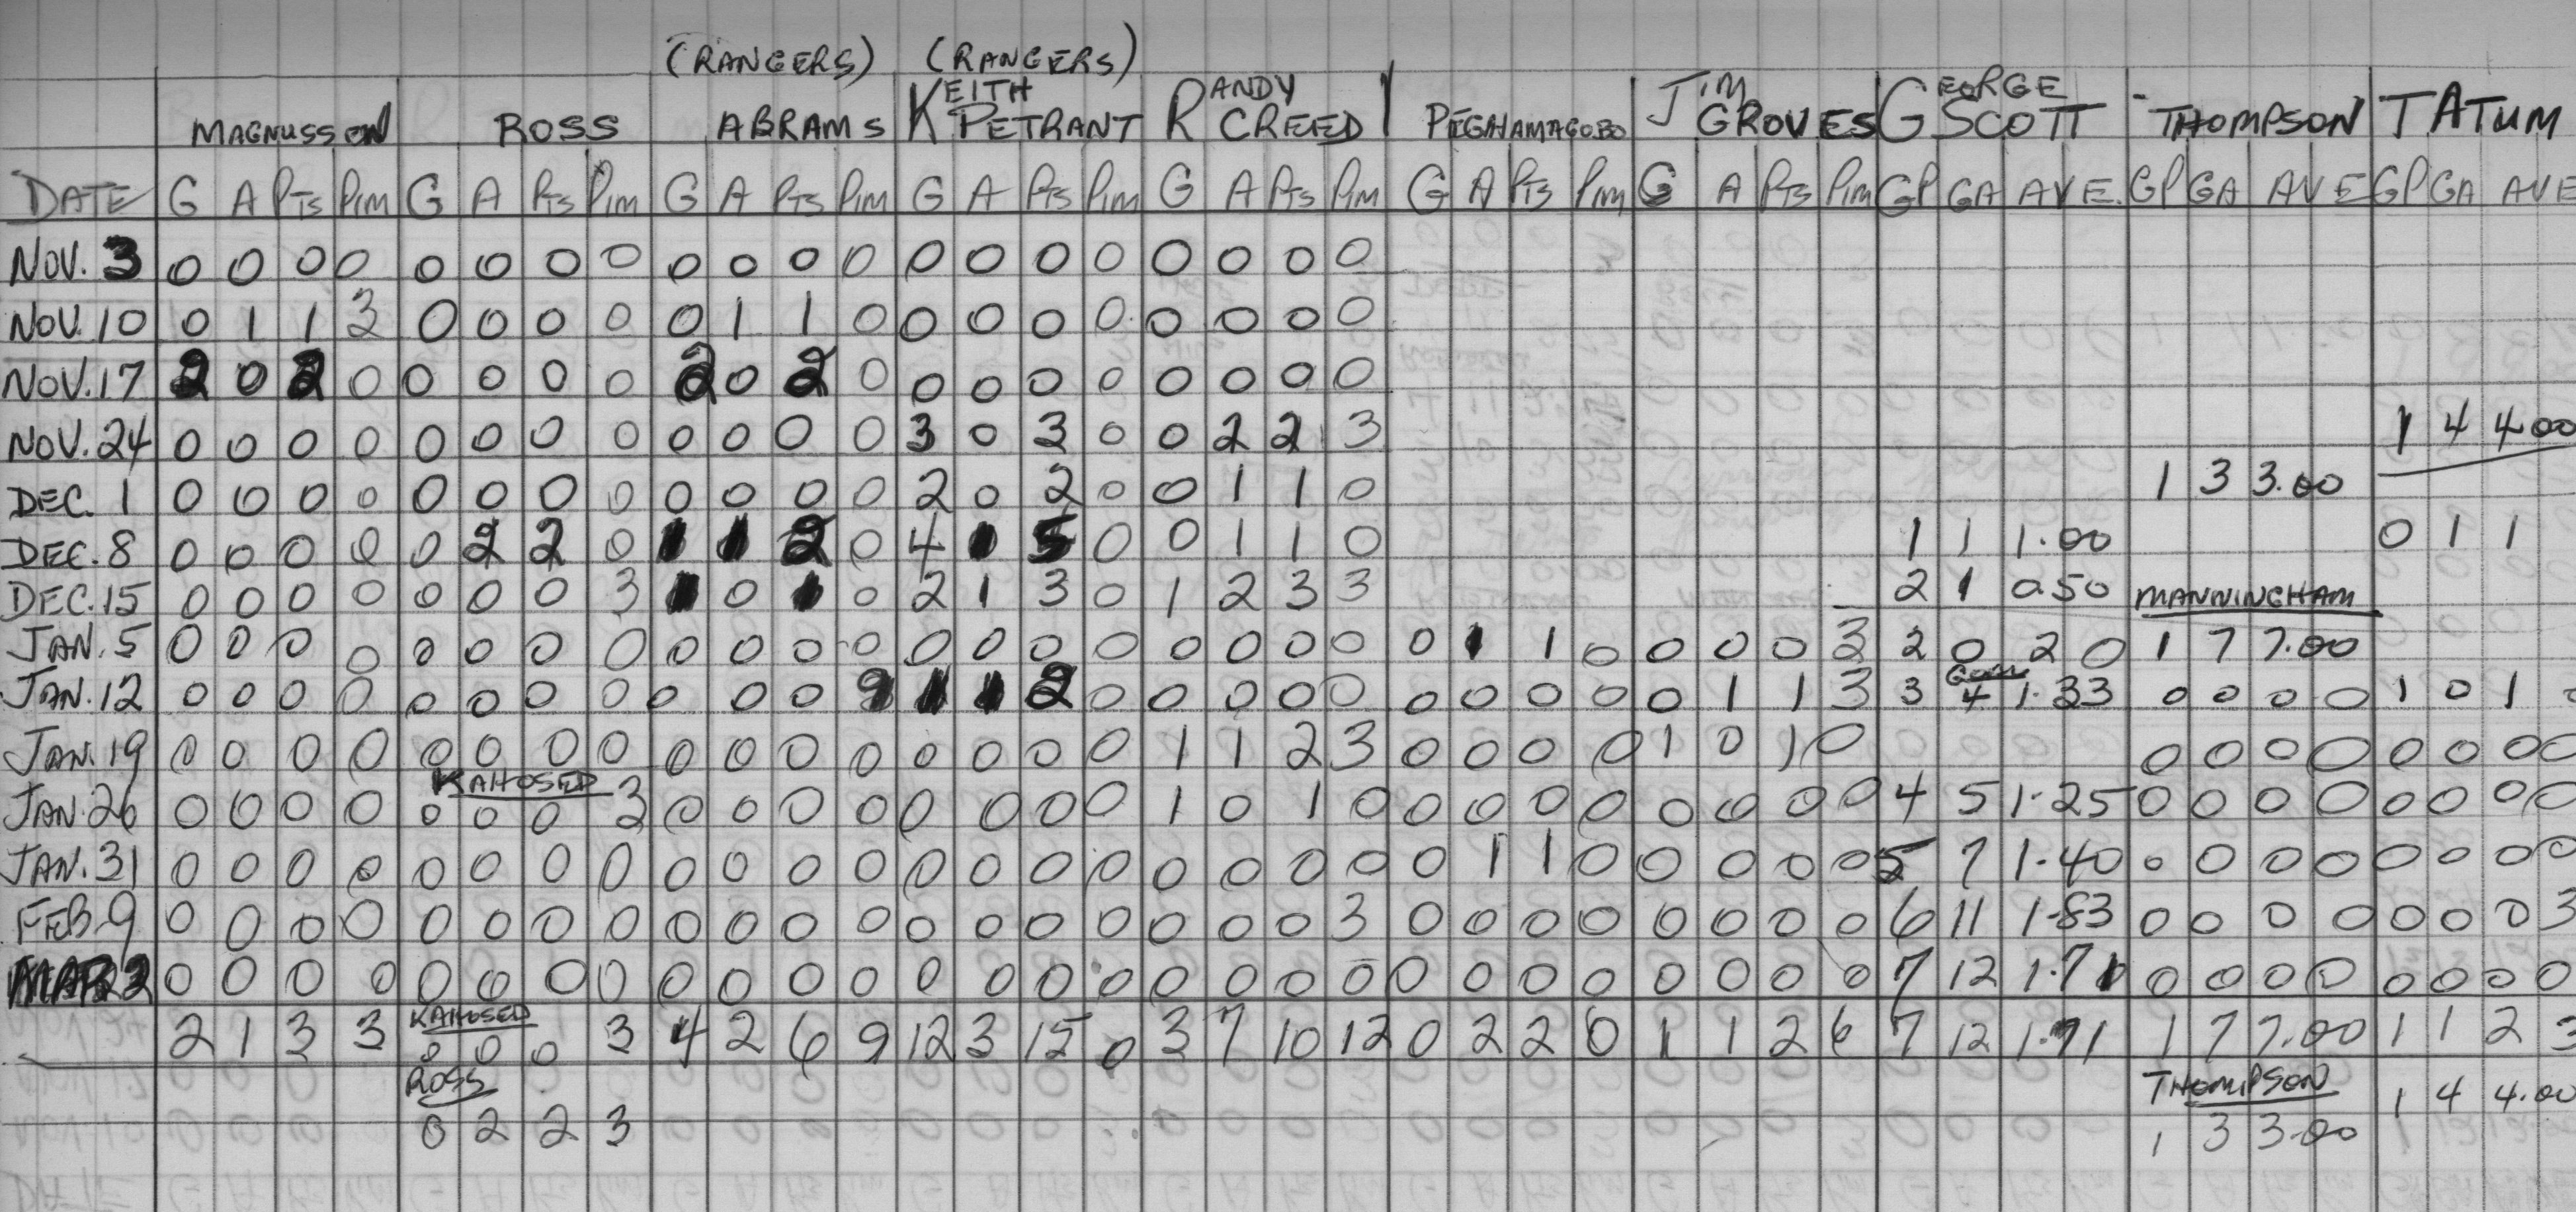 (RANGERS) (RANGERS)
MAGNUSSON ROSS ABRAMS KEITH PETRANT RANDY CREED PEGAHAMAGOBO JIM GROVES GEORGE SCOTT THOMPSON TATUM
DATE G A PTS PIM G A PTS PIM G A PTS PIM G A PTS PIM G A PTS PIM G A PTS PIM G A PTS PIM GP GA AVE. GP GA AVE GP GA AVE
NOV. 3 0 0 0 0 0 0 0 0 0 0 0 0 0 0 0 0 0 0 0 0
NOV. 10 0 1 1 3 0 0 0 0 0 1 1 0 0 0 0 0 0 0 0 0
NOV. 17 2 0 2 0 0 0 0 0 2 0 2 0 0 0 0 0 0 0 0 0
NOV. 24 0 0 0 0 0 0 0 0 0 0 0 0 3 0 3 0 0 2 2 3 1 4 4.00
DEC. 1 0 0 0 0 0 0 0 0 0 0 0 0 2 0 2 0 0 1 1 0 1 3 3.00
DEC. 8 0 0 0 0 0 2 2 0 1 1 2 0 4 1 5 0 0 1 1 0 1 1 1.00 0 1 1
DEC. 15 0 0 0 0 0 0 0 3 1 0 1 0 2 1 3 0 1 2 3 3 2 1 0.50 MANNINGHAM
JAN. 5 0 0 0 0 0 0 0 0 0 0 0 0 0 0 0 0 0 0 0 0 0 1 1 0 0 0 0 3 2 0 2 0 1 7 7.00
JAN. 12 0 0 0 0 0 0 0 0 0 0 0 9 1 1 2 0 0 0 0 0 0 0 0 0 0 1 1 3 3 4 1.33 0 0 0 0 1 0 1
JAN. 19 0 0 0 0 0 0 0 0 0 0 0 0 0 0 0 0 1 1 2 3 0 0 0 0 1 0 1 0 0 0 0 0 0 0 0 0
KAHOSED
JAN. 26 0 0 0 0 0 0 0 3 0 0 0 0 0 0 0 0 1 0 1 0 0 0 0 0 0 0 0 0 4 5 1.25 0 0 0 0 0 0 0 0
JAN. 31 0 0 0 0 0 0 0 0 0 0 0 0 0 0 0 0 0 0 0 0 0 1 1 0 0 0 0 0 5 7 1.40 0 0 0 0 0 0 0 0
FEB. 9 0 0 0 0 0 0 0 0 0 0 0 0 0 0 0 0 0 0 0 3 0 0 0 0 0 0 0 0 6 11 1.83 0 0 0 0 0 0 0 3
MAR 2 0 0 0 0 0 0 0 0 0 0 0 0 0 0 0 0 0 0 0 0 0 0 0 0 0 0 0 0 7 12 1.71 0 0 0 0 0 0 0 0
KAHOSED
2 1 3 3 0 0 0 3 4 2 6 9 12 3 15 0 3 7 10 12 0 2 2 0 1 1 2 6 7 12 1.71 1 7 7.00 1 1 2 3
ROSS THOMPSON 1 4 4.00
0 2 2 3 1 3 3.00